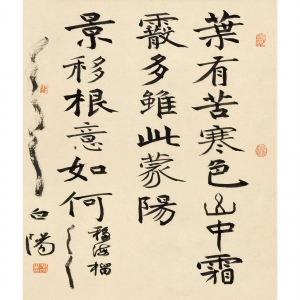 葉有苦寒色山中霜
霰多雖此蒙陽
景移根意如何
移海榴